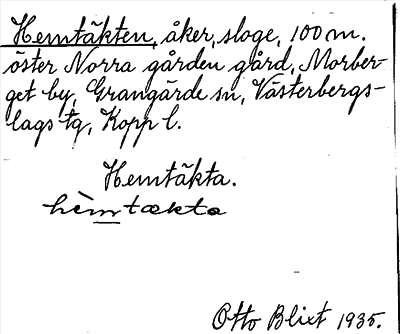 Hemtäkten, åker, sloge, 100 m.
öster Norra gården gård, Morber-
get by, Grangärde sn, Västerbergs-
lags tg, Kopp l.
Hemtäkta.
hèmtækta
Otto Blixt 1935.